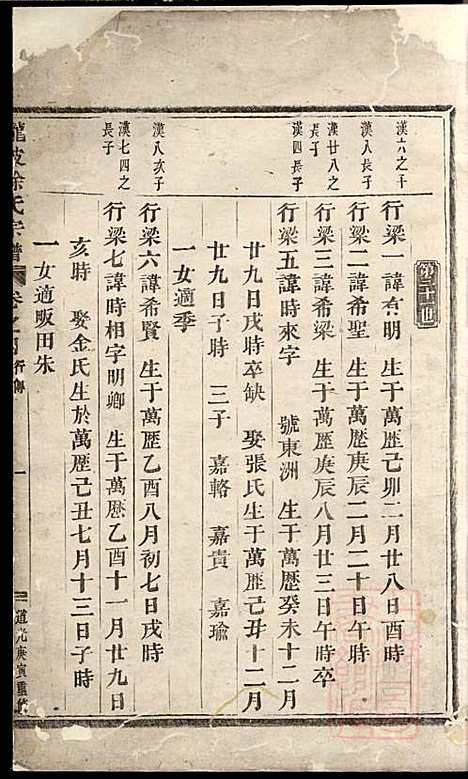 第三十世
漢六之子
行梁一諱有明 生于萬歷己卯二月廿八日酉時
漢八長子
行梁二諱希聖 生于萬歷庚辰二月二十日午時
漢廿八之長子
行梁三諱希梁 生于萬歷庚辰八月廿三日午時卒
漢四長子
行梁五諱時來字 號東洲 生于萬歷癸未十二月
廿九日戌時卒缺 娶張氏生于萬歷己丑十二月
廿九日子時 三子 嘉輅 嘉貴 嘉瑜
一女適季
漢八次子
行梁六諱希賢 生于萬歷乙酉八月初七日戌時
漢七四之長子
行梁七諱時相字明卿 生于萬歷乙酉十一月廿九日
亥時 娶金氏生於萬歷己丑七月十三日子時
一女適畈田朱
龍陂徐氏宗譜 卷之 行傳 一 道光庚寅重修